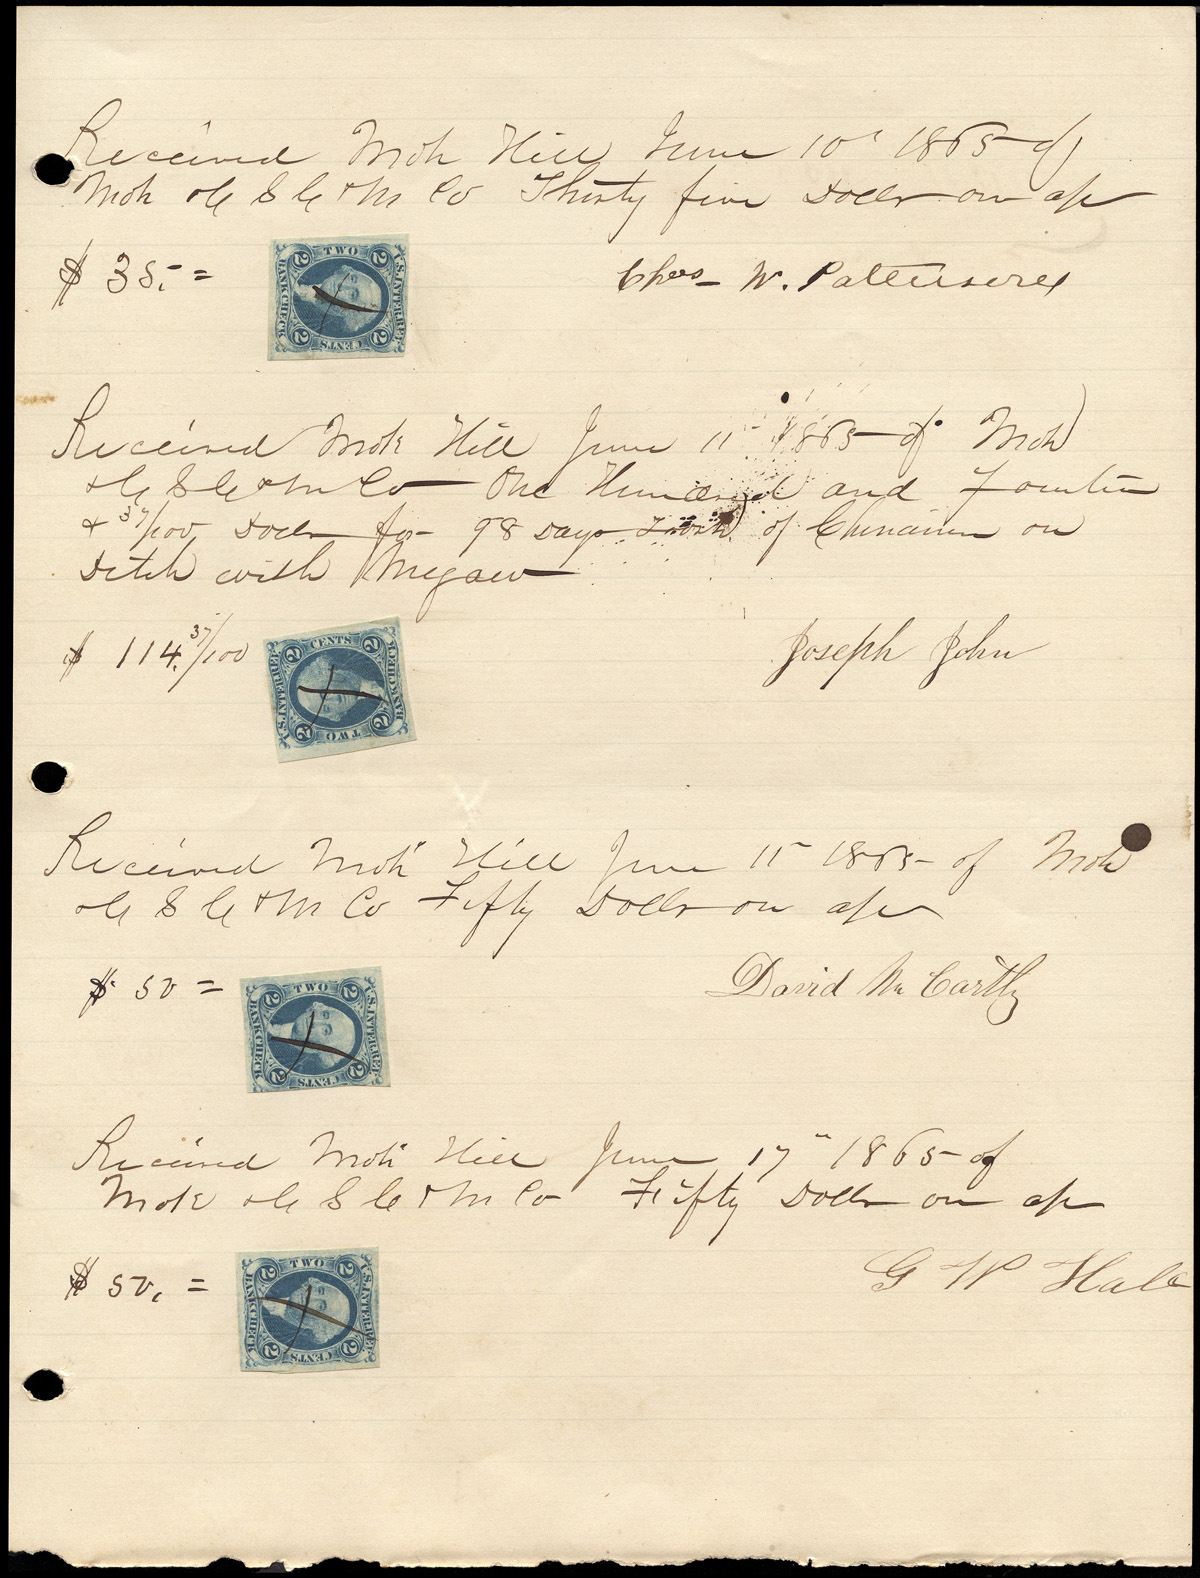 Received Mok Hill June 10t 1865 of
Mok Hill & C & M Co Thirty five Dolls on a/c
$ 35.=
TWO
BANK CHECK
U.S. INTER. REV.
CENTS
2 2 2 2
Chas W. Pattersone
Received Mok Hill June 11 1865 of Mok
C & M Co One Hundred and Fourteen
& 37/100 Dolls for 98 Days Work of Chinamen on
Ditch with Megaw
$ 114.37/100
CENTS
U.S. INTER. REV.
BANK CHECK
TWO
2 2 2 2
Joseph John
Received Mok Hill June 11 1865 of Mok
C & M Co Fifty Dolls on a/c
$ 50 =
TWO
BANK CHECK
U.S. INTER. REV.
CENTS
2 2 2 2
David McCarthy
Received Mok Hill June 17" 1865 of
Mok C & M Co Fifty Dolls on a/c
$ 50. =
TWO
BANK CHECK
U.S. INTER. REV.
CENTS
2 2 2 2
G W Hale